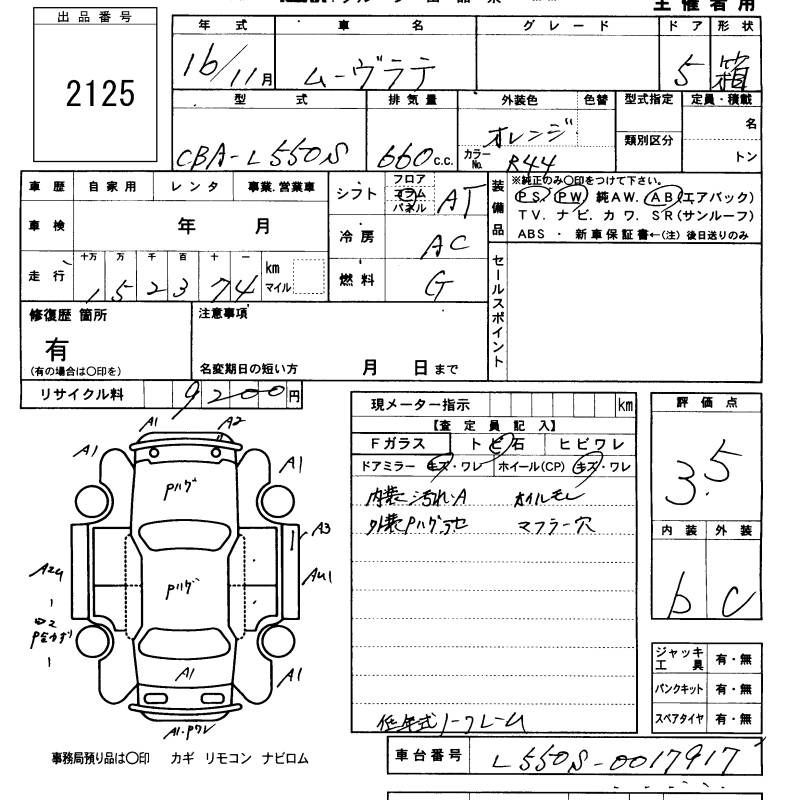 主催者用
出品番号
2125
年式 車名 グレード ドア 形状
16/11月 ムーヴラテ 5 箱
型式 排気量 外装色 色替 型式指定 定員・積載
類別区分
名
トン
CBA-L550S 660c.c. オレンジ カラーNo. R44
車歴 自家用 レンタ 事業.営業車
シフト フロア コラム パネル AT
装備品
※純正のみ〇印をつけて下さい。
PS. PW 純AW. AB(エアバック)
TV. ナビ. カワ. SR(サンルーフ)
ABS ・ 新車保証書←(注) 後日送りのみ
車検 年 月
冷房 AC
走行 十万 万 千 百 十 一 km マイル
152374
燃料 G
セールスポイント
修復歴 箇所
有
(有の場合は〇印を)
注意事項
名変期日の短い方 月 日まで
リサイクル料 9200円
現メーター指示 km
【査定員記入】
Fガラス トビ石 ヒビワレ
ドアミラー キズ・ワレ ホイール(CP) キズ・ワレ
内装 汚れ.A オイルモレ
外装Pハゲアセ マフラー穴
低年式ノークレーム
評価点
3.5
内装 外装
b C
ジャッキ工具 有・無
パンクキット 有・無
スペアタイヤ 有・無
A1 A2
A1 A1
Pハゲ
A3
A24 AU1
Pハゲ
A1 A1
A1.Pワレ
事務局預り品は〇印 カギ リモコン ナビロム
車台番号 L550S-0017917